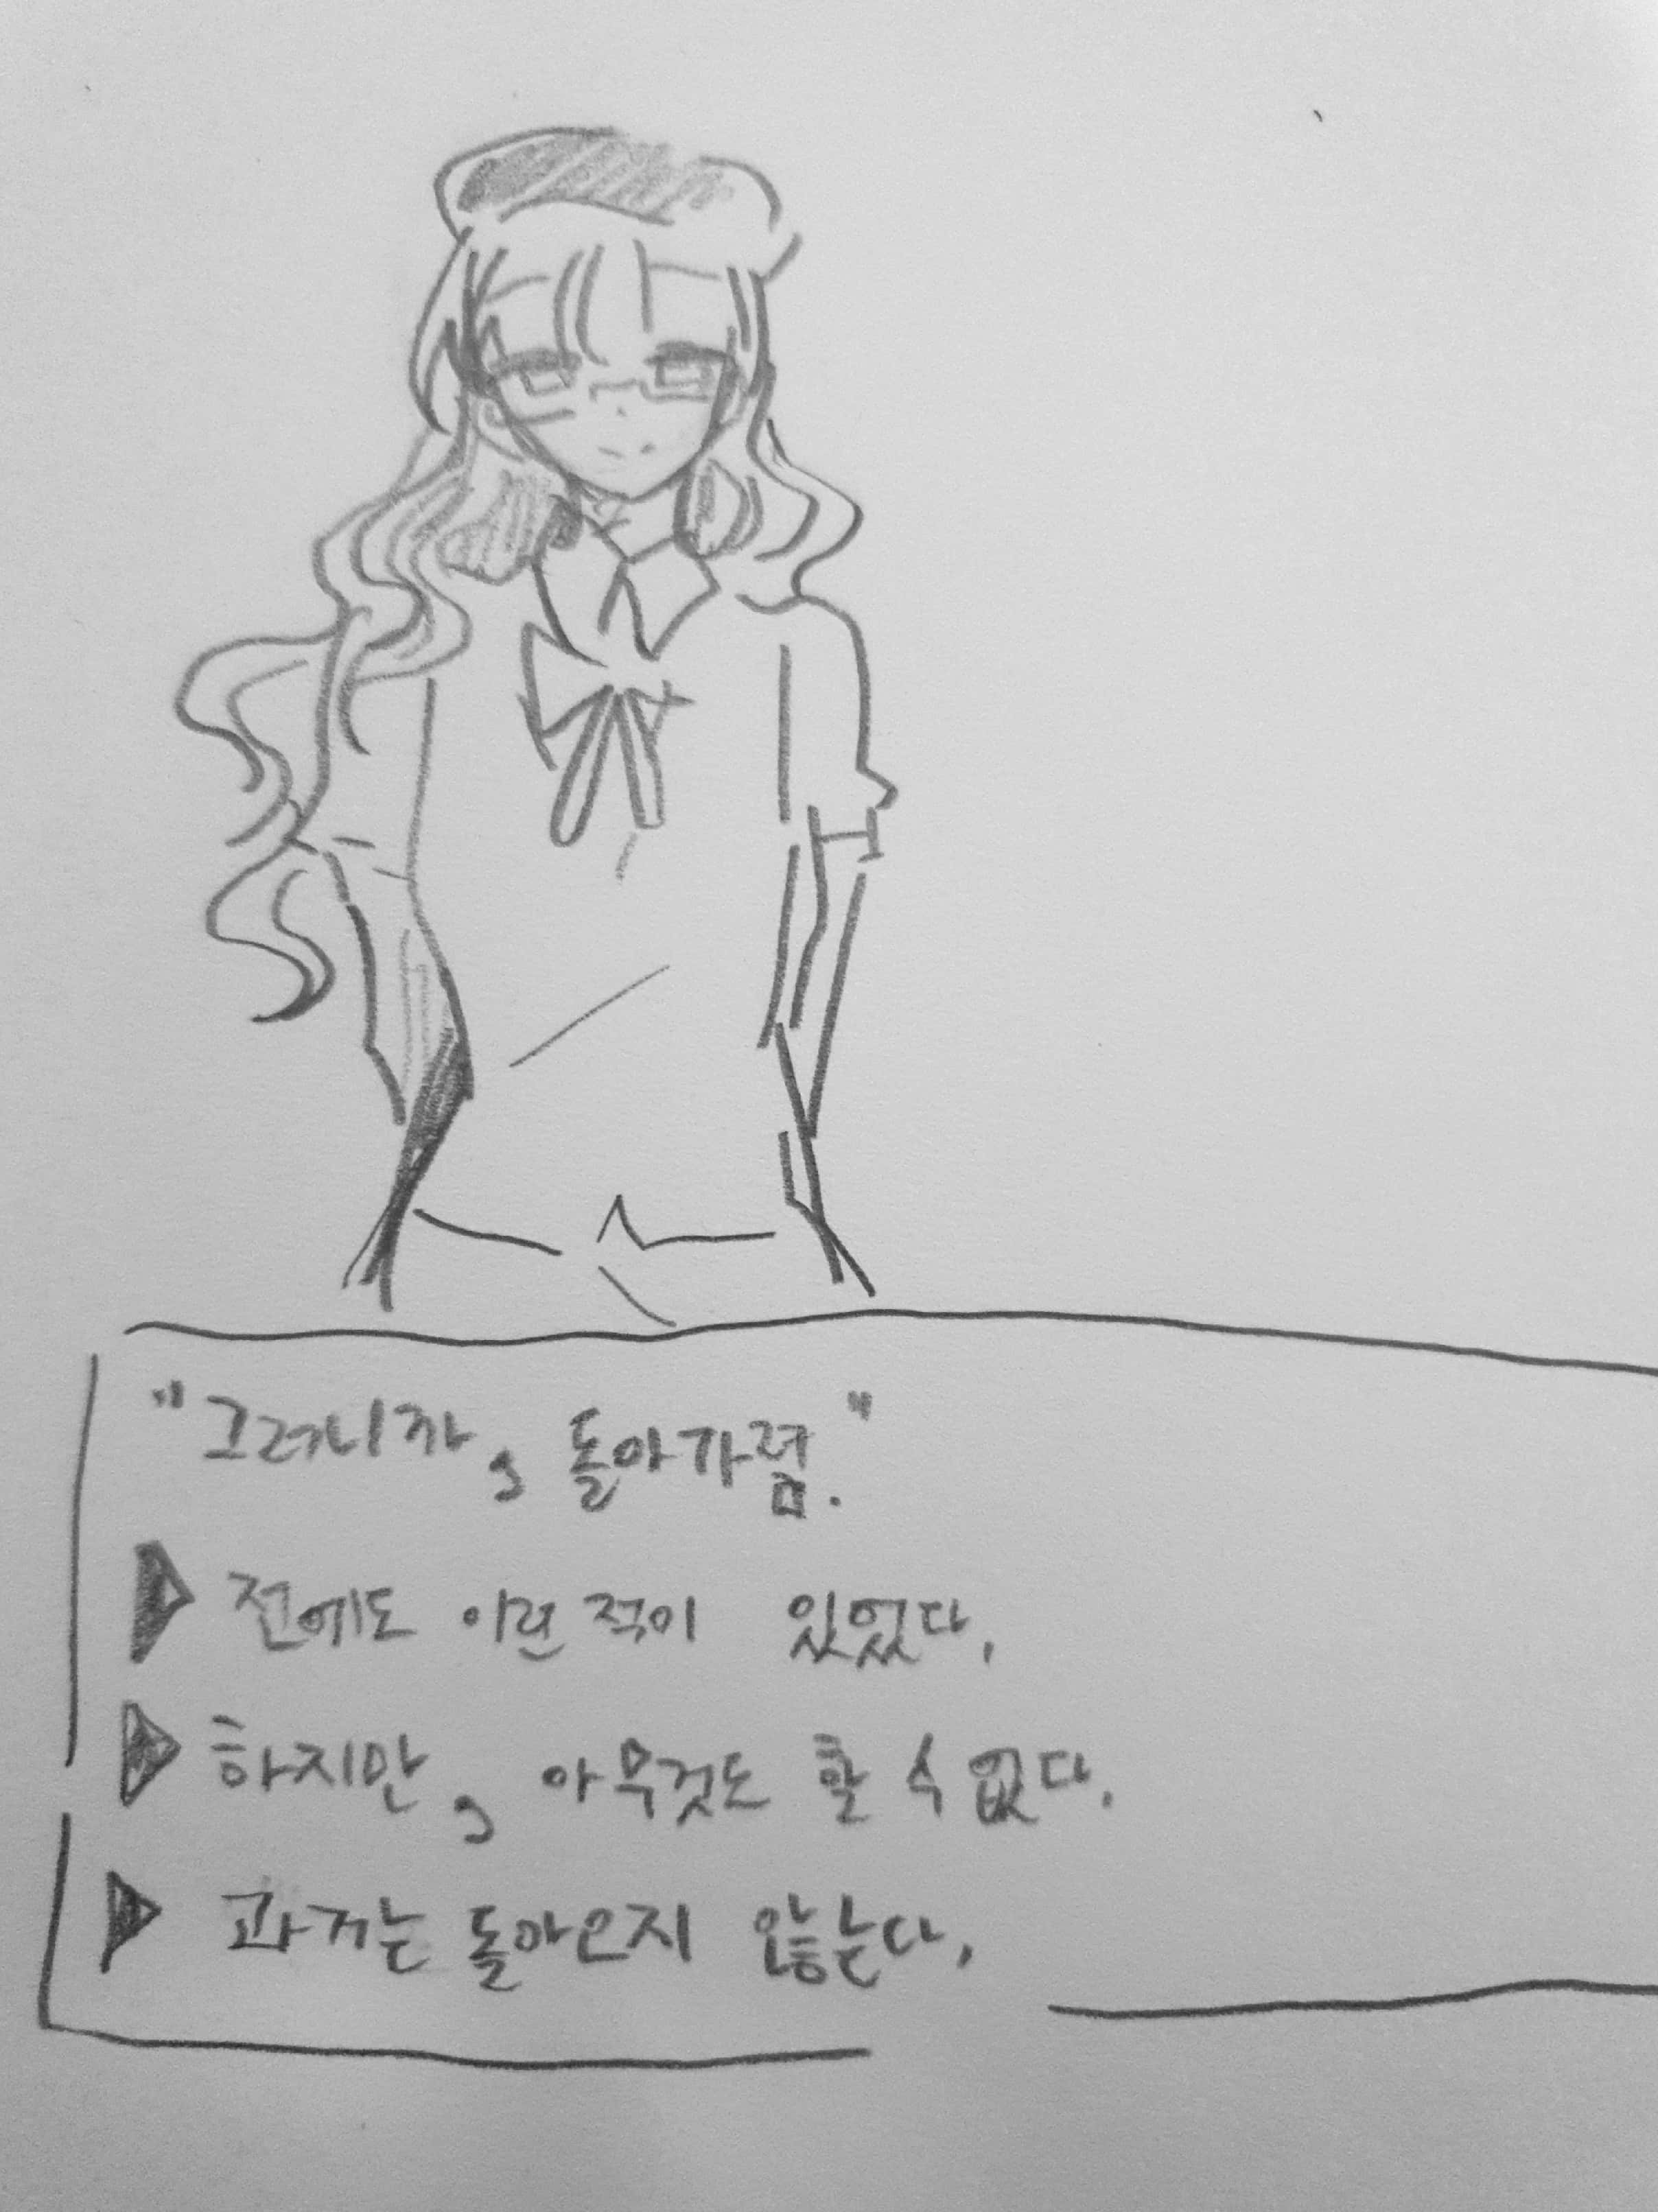 "그러니까, 돌아가렴."
▶ 전에도 이런 적이 있었다.
▶ 하지만, 아무것도 할 수 없다.
▶ 과거는 돌아오지 않는다.